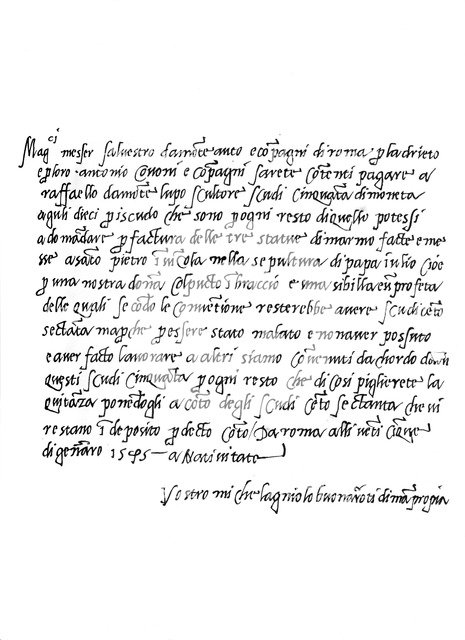 Magci messer salvestro damõte auto e cõpagni di roma p ladrieto
e ploro antonio Covoni e cõpagni sarete cõtemti pagare a
raffaello damõte lupo scultore scudi cinquãta di moneta
a guli dieci p iscudo che sono p ogni resto di quello potessi
a domãdare p factura delle tre statue di marmo facte e me
sse a sãto pietro ĩ vĩcola nella sepultura di papa iulio cioe
p una nostra dõna col pucto ĩ braccio e una sibilla e ũ profeta
delle quali secõdo le cõvẽtione resterebbe avere scudi cẽto
sectãta ma p che p essere stato malato e nõ n aver possuto
e aver facto lavorare a altri siamo cõvenuti dachordo
questi scudi cinquãta p ogni resto che di cosi piglierete la
quitãza ponẽdogli a cõto degli scudi cẽto sectanta che vi
restano ĩ deposito p decto cõto / Da roma alli vẽti cĩque
di gẽnaro 1545 a Nativitate
Vostro michelagniolo buonarroti di mã propia